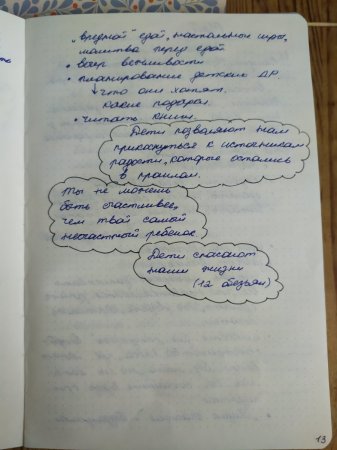 „вредной" едой, настольные игры,
молитва перед едой
• вечер вежливости
• планирование детских ДР.
что они хотят,
какие подарки
• читать книги.
Дети позволяют нам
прикоснуться к источникам
радости, которые остались
в прошлом.
Ты не можешь
быть счастливее,
чем твой самый
несчастный ребенок.
Дети спасают
наши жизни
(12 обезьян)
13